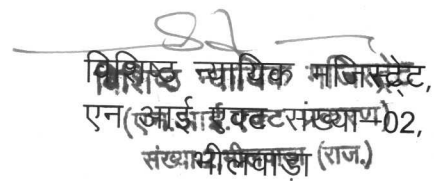 विशिष्ठ न्यायिक मजिस्ट्रेट,
एन आई एक्ट संख्या 02,
भीलवाड़ा (राज.)